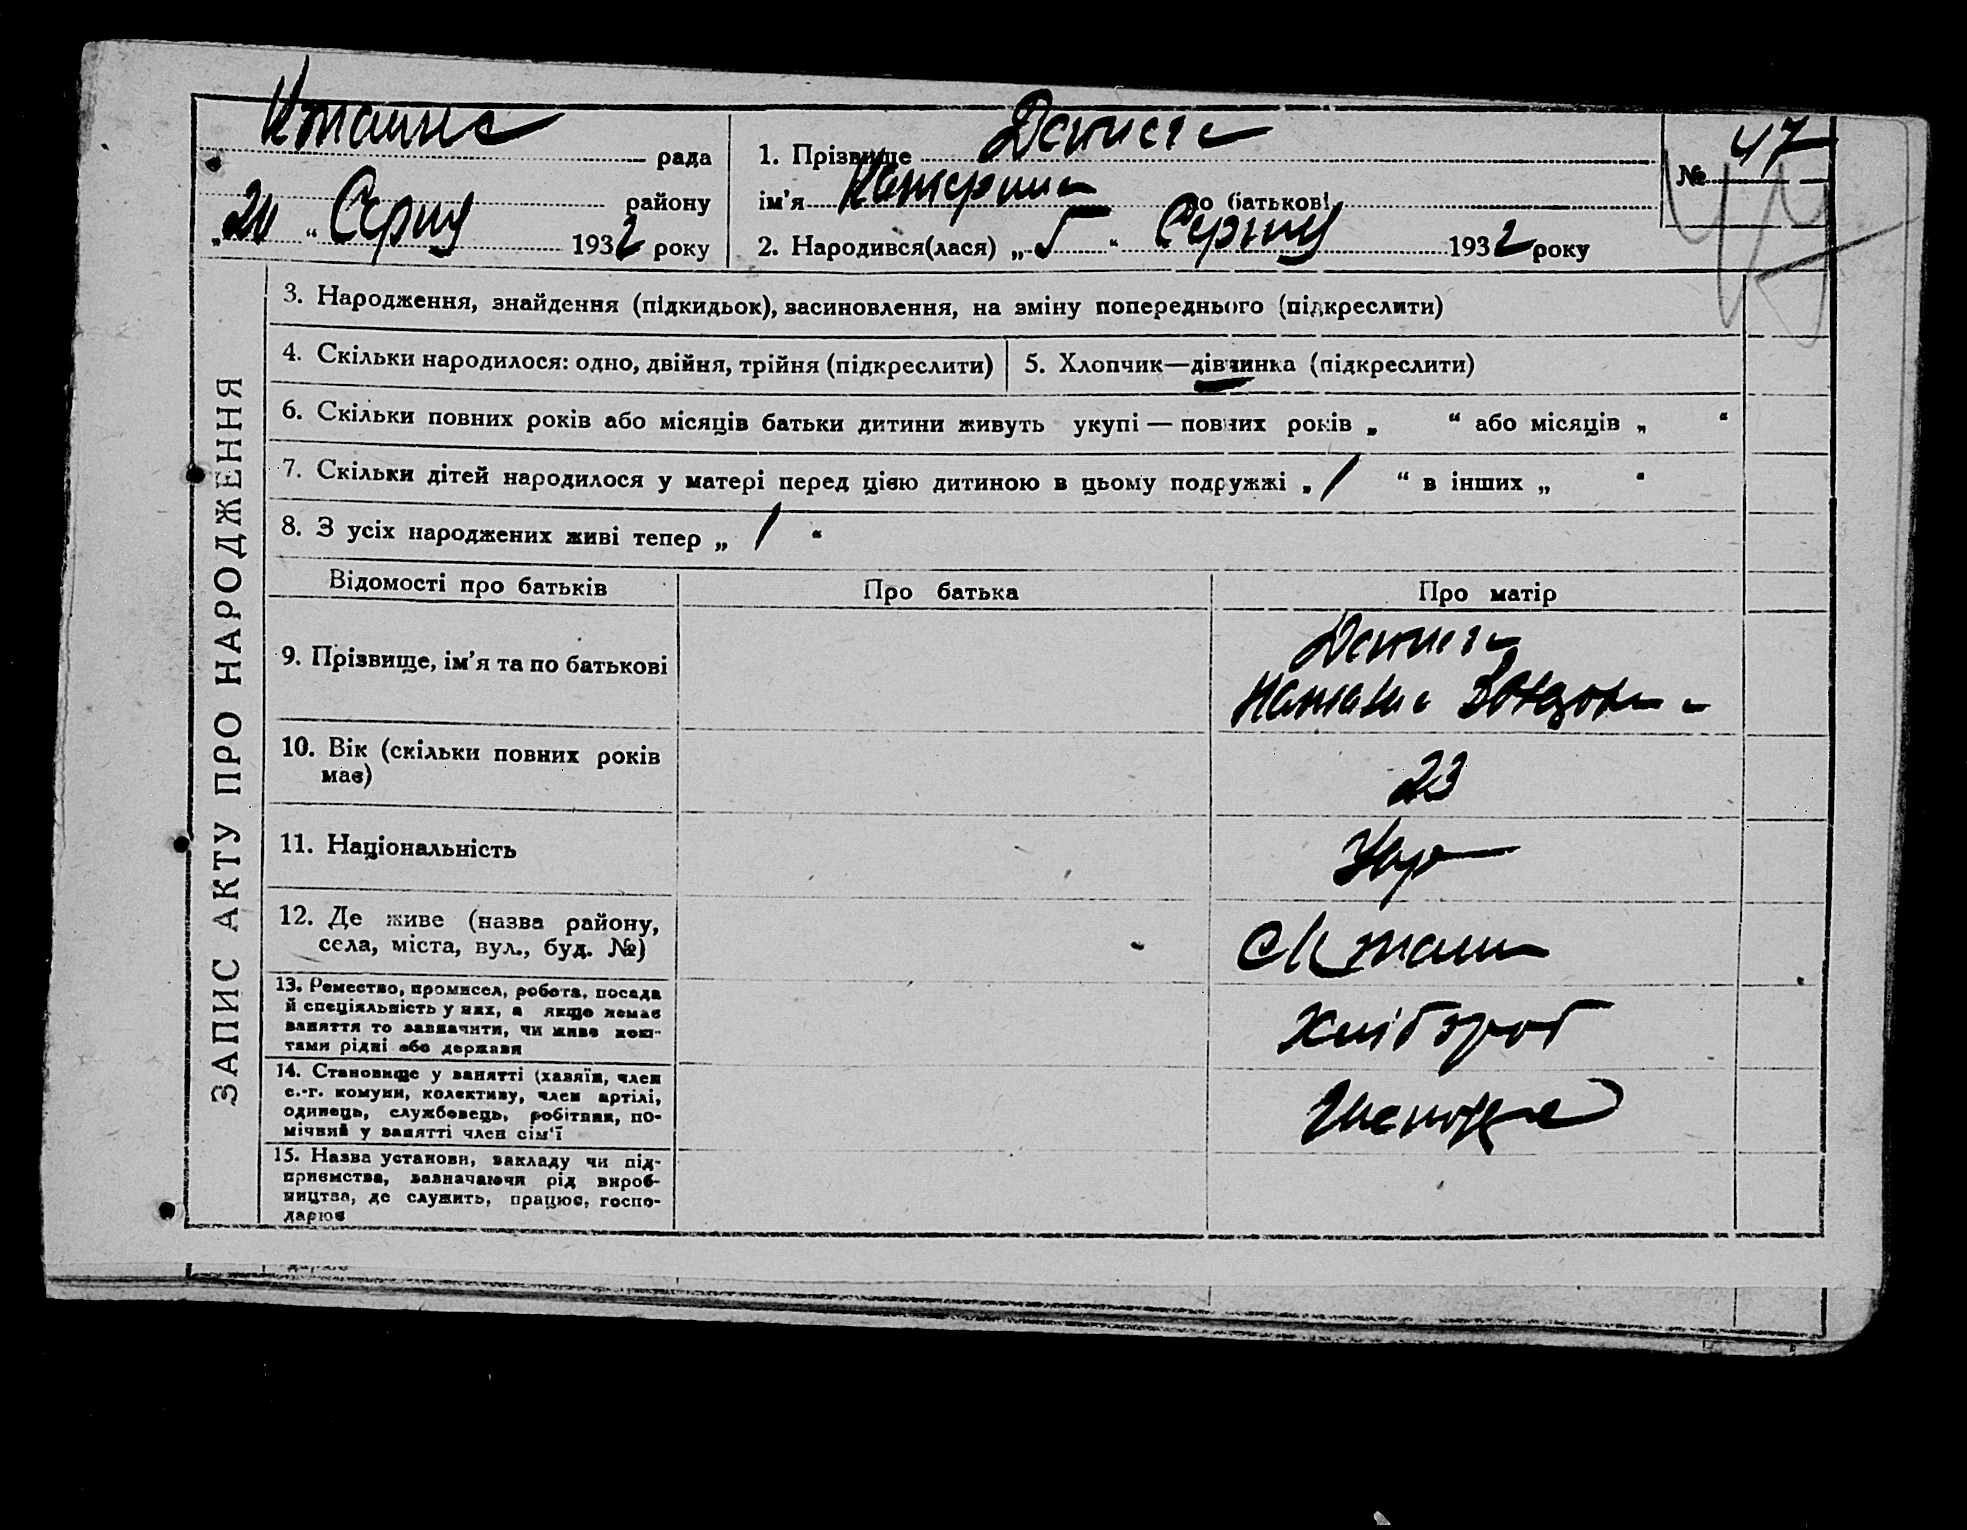 рада
1. Прізвище
№ 47
району
ім'я Катерина по батькові
„20“ Серпня 1932 року
2. Народився(лася) „5“ Серпня 1932 року
ЗАПИС АКТУ ПРО НАРОДЖЕННЯ
3. Народження, знайдення (підкидьок), засиновлення, на зміну попереднього (підкреслити)
4. Скільки народилося: одно, двійня, трійня (підкреслити)
5. Хлопчик—дівчинка (підкреслити)
6. Скільки повних років або місяців батьки дитини живуть укупі — повних років „ “ або місяців „ “
7. Скільки дітей народилося у матері перед цією дитиною в цьому подружжі „ / “ в інших „ “
8. З усіх народжених живі тепер „ / “
Відомості про батьків
Про батька
Про матір
9. Прізвище, ім'я та по батькові
10. Вік (скільки повних років має)
23
11. Національність
Укр
12. Де живе (назва району,
села, міста, вул., буд. №)
13. Ремество, промисел, робота, посада
й спеціяльність у них, а якщо немає
заняття то зазначити, чи живе кош-
тами рідні або держави
Хлібороб
14. Становище у занятті (хазяїн, член
с.-г. комуни, колективу, член артілі,
одинець, службовець, робітник, по-
мічний у занятті член сім'ї
15. Назва установи, закладу чи під-
приємства, зазначаючи рід вироб-
ництва, де служить, працює, госпо-
дарює